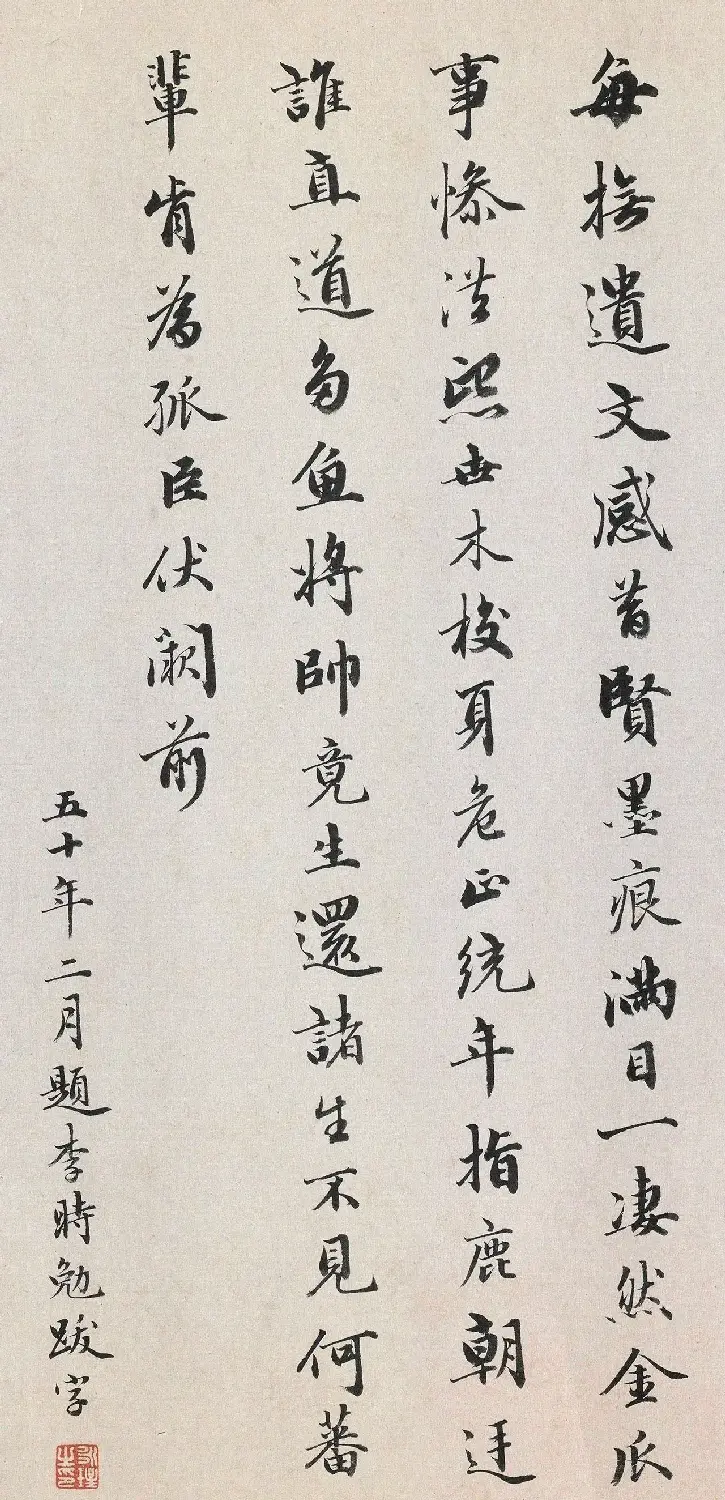 每撫遺文感昔賢墨痕滿目一淒然金瓜
事慘洪熙世木校身危正統年指鹿朝廷
誰直道刍魚將帥竟生還諸生不見何蕃
輩肯為孤臣伏闕前
五十年二月題李時勉跋字